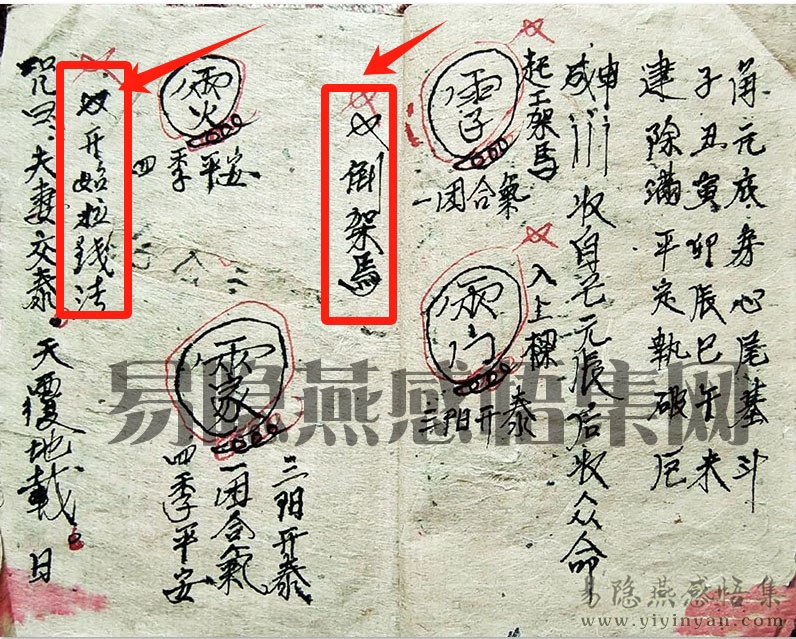 角亢底房心尾基斗
子丑寅卯辰巳午未
建除满平定執破厄
神
咸 收自己元辰后收众命
起工架馬
一团合氣
入上樑
三阳开泰
倒架馬
四季平安
三阳开泰
一团合氣
四季平安
开始拉錢法
咒曰：夫妻交泰。天覆地载。日
易隐燕感悟集网
易隐燕感悟集
www.yiyinyan.com